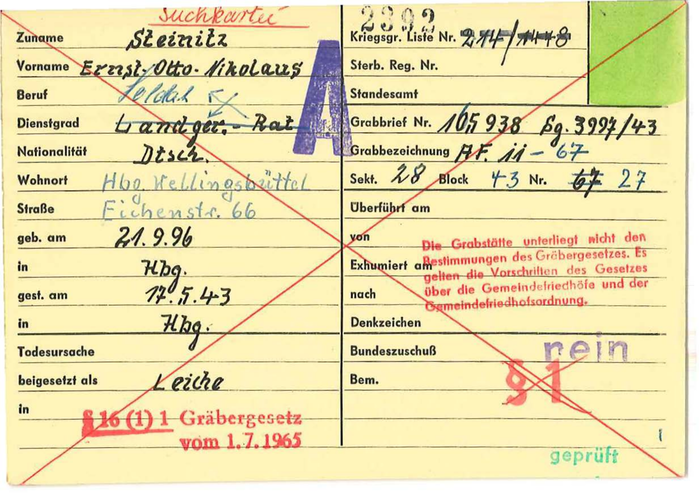 Suchkartei
2392
Zuname Steinitz
Vorname Ernst-Otto-Nikolaus
Beruf Soldat
Dienstgrad Landger.-Rat
Nationalität Dtsch.
Wohnort Hbg. Wellingsbüttel
Straße Eichenstr. 66
geb. am 21.9.96
in Hbg.
gest. am 17.5.43
in Hbg.
Todesursache
beigesetzt als Leiche
in
§ 16 (1) 1 Gräbergesetz
vom 1.7.1965
A
Kriegsgr. Liste Nr. 214/1118
Sterb. Reg. Nr.
Standesamt
Grabbrief Nr. 165938 Bg. 3997/43
Grabbezeichnung AF. 11-67
Sekt. 28 Block 43 Nr. 67 27
Überführt am
von
Exhumiert am
nach
Denkzeichen
Bundeszuschuß nein
Bem.
Die Grabstätte unterliegt nicht den
Bestimmungen des Gräbergesetzes. Es
gelten die Vorschriften des Gesetzes
über die Gemeindefriedhöfe und der
Gemeindefriedhofsordnung.
§ 1
geprüft